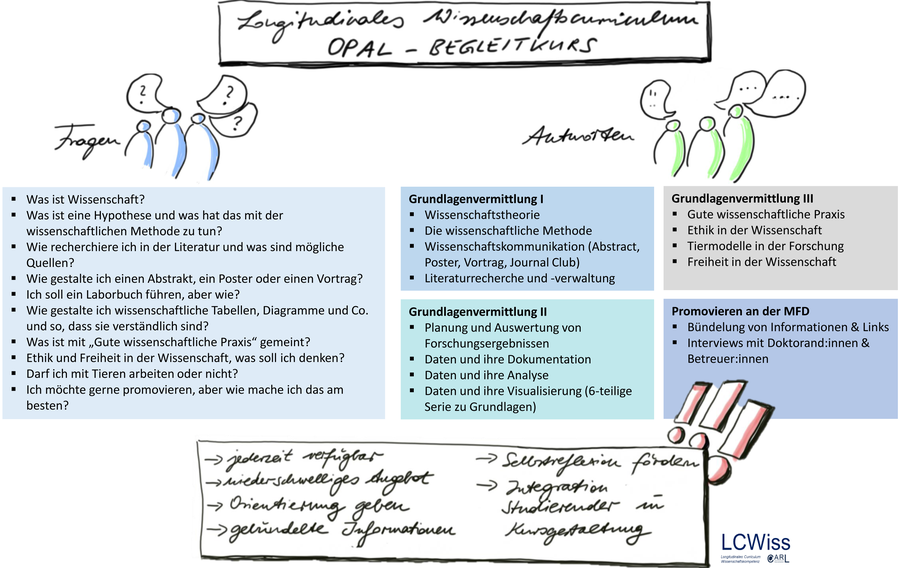 Longitudinales Wissenschaftscurriculum
OPAL – BEGLEITKURS
?
?
?
Fragen
Antworten
...
....
▪ Was ist Wissenschaft?
▪ Was ist eine Hypothese und was hat das mit der
wissenschaftlichen Methode zu tun?
▪ Wie recherchiere ich in der Literatur und was sind mögliche
Quellen?
▪ Wie gestalte ich einen Abstrakt, ein Poster oder einen Vortrag?
▪ Ich soll ein Laborbuch führen, aber wie?
▪ Wie gestalte ich wissenschaftliche Tabellen, Diagramme und Co.
und so, dass sie verständlich sind?
▪ Was ist mit „Gute wissenschaftliche Praxis" gemeint?
▪ Ethik und Freiheit in der Wissenschaft, was soll ich denken?
▪ Darf ich mit Tieren arbeiten oder nicht?
▪ Ich möchte gerne promovieren, aber wie mache ich das am
besten?
Grundlagenvermittlung I
▪ Wissenschaftstheorie
▪ Die wissenschaftliche Methode
▪ Wissenschaftskommunikation (Abstract,
Poster, Vortrag, Journal Club)
▪ Literaturrecherche und -verwaltung
Grundlagenvermittlung II
▪ Planung und Auswertung von
Forschungsergebnissen
▪ Daten und ihre Dokumentation
▪ Daten und ihre Analyse
▪ Daten und ihre Visualisierung (6-teilige
Serie zu Grundlagen)
Grundlagenvermittlung III
▪ Gute wissenschaftliche Praxis
▪ Ethik in der Wissenschaft
▪ Tiermodelle in der Forschung
▪ Freiheit in der Wissenschaft
Promovieren an der MFD
▪ Bündelung von Informationen & Links
▪ Interviews mit Doktorand:innen &
Betreuer:innen
!!!
→ jederzeit verfügbar
→ niederschwelliges Angebot
→ Orientierung geben
→ gebündelte Informationen
→ Selbstreflexion fördern
→ Integration
Studierender in
Kursgestaltung
LCWiss
Longitudinales Curriculum
Wissenschaftskompetenz
CARL